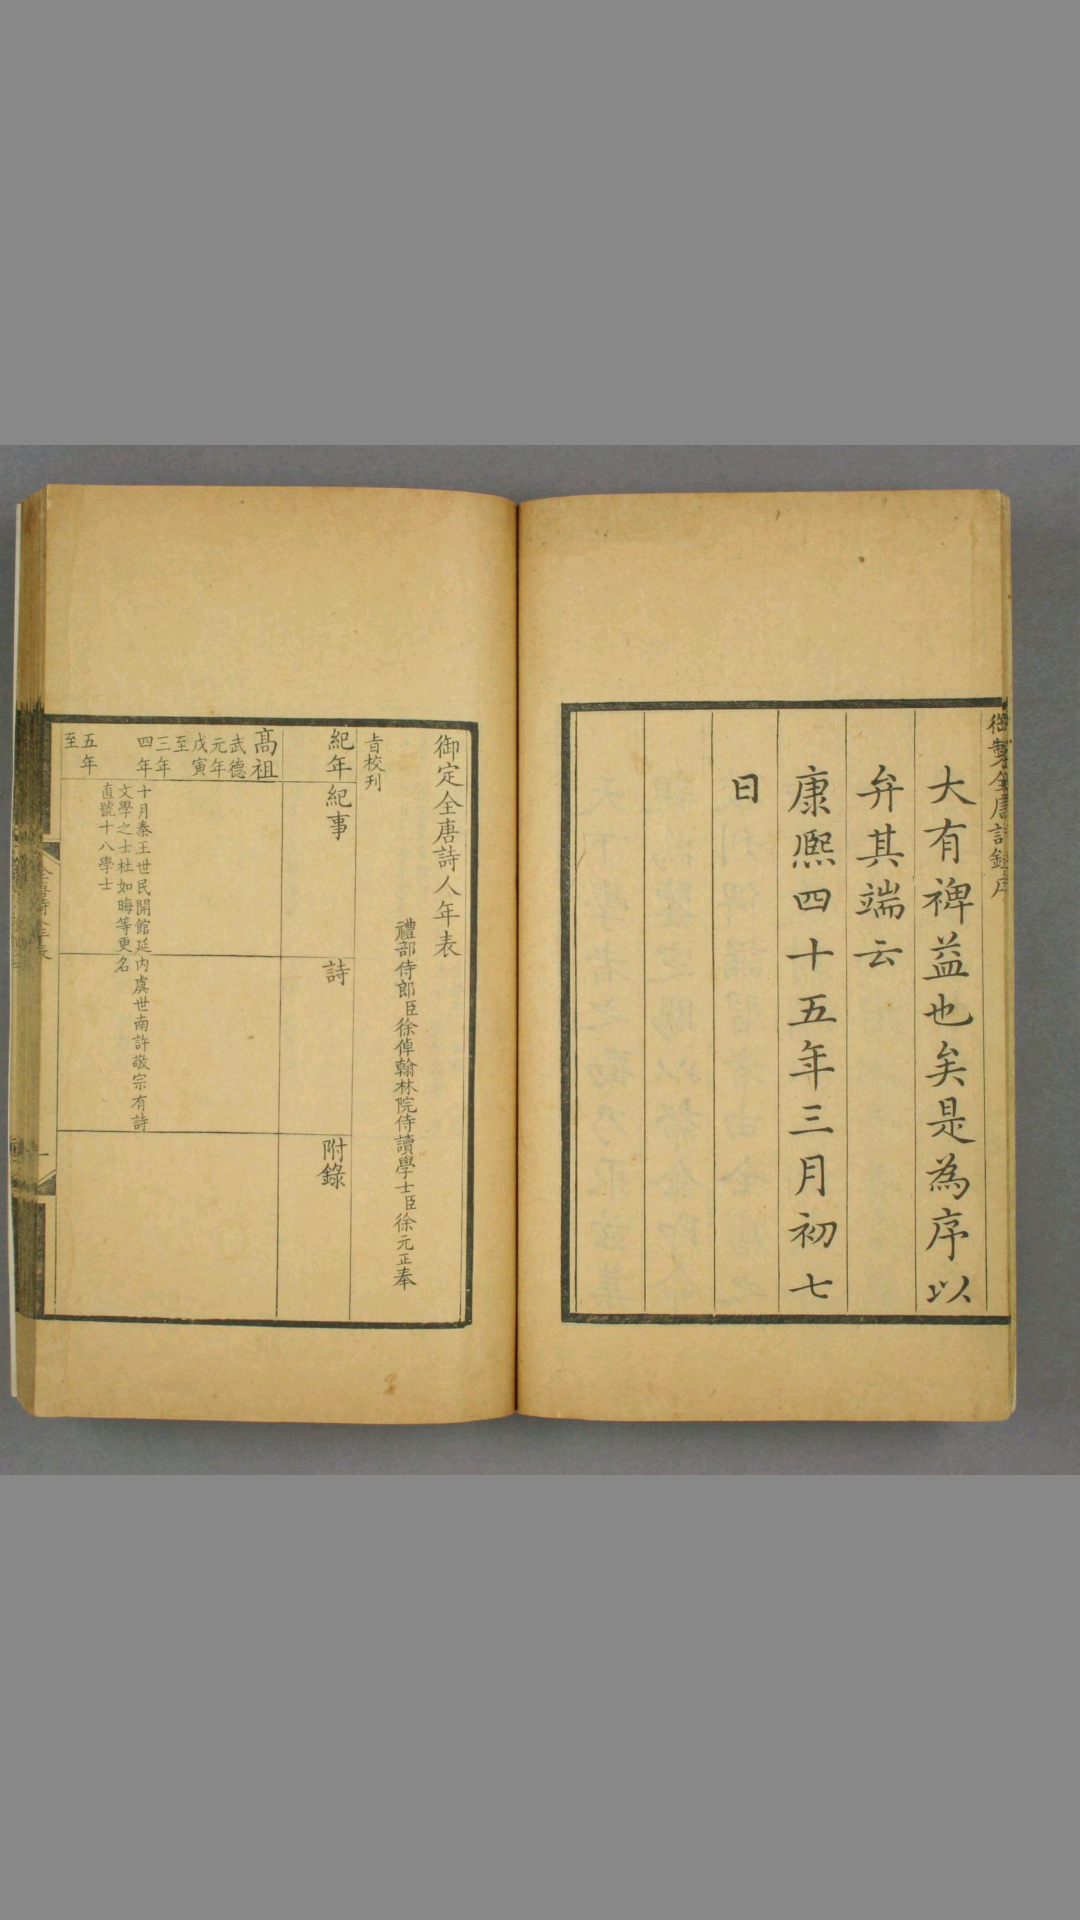 御製全唐詩錄序
大有裨益也矣是為序以
弁其端云
康熙四十五年三月初七
日
御定全唐詩人年表
禮部侍郎臣徐倬翰林院侍讀學士臣徐元正奉
旨校刋
紀年
紀事
詩
附錄
高祖
武德
元年
戊寅
至
三年
四年
十月秦王世民開館延
文學之士杜如晦等更
直號十八學士
內虞世南許敬宗有詩
名
五年
至
全唐詩人年表
一